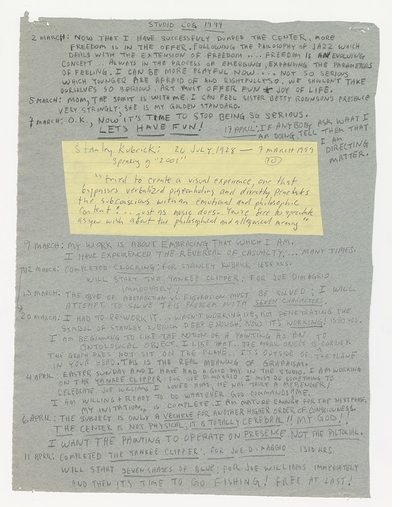 STUDIO LOG 1999
2 MARCH: NOW THAT I HAVE SUCCESSFULLY DODGED THE CENTER, MORE
FREEDOM IS IN THE OFFER. FOLLOWING THE PHILOSOPHY OF JAZZ WHICH
DEALS WITH THE EXTENSION OF FREEDOM ... FREEDOM IS AN EVOLVING
CONCEPT... ALWAYS IN THE PROCESS OF EMERGING, EXPANDING THE PARAMETERS
OF FEELING. I CAN BE MORE PLAYFUL NOW... NOT SO SERIOUS
WHICH YOUNGER ARE AFRAID OF AND RIGHTFULLY SO. WE SHOULDN'T TAKE
OURSELVES SO SERIOUS. ART MUST OFFER FUN & JOY OF LIFE.
5 MARCH: MOM, THE SPIRIT IS WITH ME. I CAN FEEL SISTER BETTY ROBINSON'S PRESENCE
VERY STRONGLY. SHE IS MY GOLDEN STANDARD.
7 MARCH: O.K., NOW IT'S TIME TO STOP BEING SO SERIOUS.
LET'S HAVE FUN!
17 APRIL: IF ANYBODY ASK WHAT I
AM DOING TELL THEM THAT
I AM
DIRECTING
MATTER.
Stanley Kubrick: 26 JULY, 1928 — 7 MARCH 1999
Speaking of "2001" (70)
"I tried to create a visual experience, one that
bypasses verbalized pigeonholing and directly penetrates
the subconscious with an emotional and philosophic
content... just as music does. You're free to speculate
as you wish about the philosophical and allegorical meaning"
9 MARCH: MY WORK IS ABOUT EMBRACING THAT WHICH I AM.
I HAVE EXPERIENCED THE REVERSAL OF CAUSALITY... MANY TIMES.
12 MARCH: COMPLETED FOR STANLEY KUBRICK
WILL START THE YANKEE CLIPPER: FOR JOE DIMAGGIO
IMMEDIATELY.
13 MARCH: THE OF ABSTRACTION MUST BE SOLVED; I WILL
ATTEMPT TO SOLVE THIS PROBLEM WITH SEVEN CHARACTERS.
I HAD TO REWORK IT... WASN'T WORKING, NOT PENETRATING THE
SYMBOL OF STANLEY KUBRICK DEEP ENOUGH. NOW IT'S WORKING!
I AM BEGINNING TO LIKE THE NOTION OF A PAINTING AS AN
ONTOLOGICAL OBJECT. I LIKE THAT. THE SMALL OBJECT IS
THE BRAIN DOES NOT SIT ON THE PLANE. IT'S OUTSIDE OF THE PLANE
IN YOUR HEAD. THIS IS THE REAL MEANING OF
4 APRIL: EASTER SUNDAY AND I HAVE HAD A GOOD DAY IN THE STUDIO. I AM WORKING
ON THE YANKEE CLIPPER FOR JOE DIMAGGIO. I MUST DO SOMETHING TO
CELEBRATE JOE WILLIAMS. I LOVED HIM, HE WAS TRULY A MESSENGER.
I AM WILLING & READY TO DO WHATEVER GOD COMMANDS ME.
MY INITIATION IS COMPLETE. I AM MATURE ENOUGH FOR THE MESSAGE.
6 APRIL: THE SURFACE IS ONLY A VEHICLE FOR ANOTHER HIGHER ORDER OF CONSCIOUSNESS.
THE CENTER IS NOT PHYSICAL, IT IS TOTALLY CEREBRAL!! MY GOD!!
I WANT THE PAINTING TO OPERATE ON PRESENCE NOT THE PICTORIAL.
11 APRIL: COMPLETED "THE YANKEE CLIPPER": FOR JOE DIMAGGIO 1310 HRS.
WILL START SEVEN SHADES OF BLUE: FOR JOE WILLIAMS IMMEDIATELY
AND THEN IT'S TIME TO GO FISHING! FREE AT LAST!